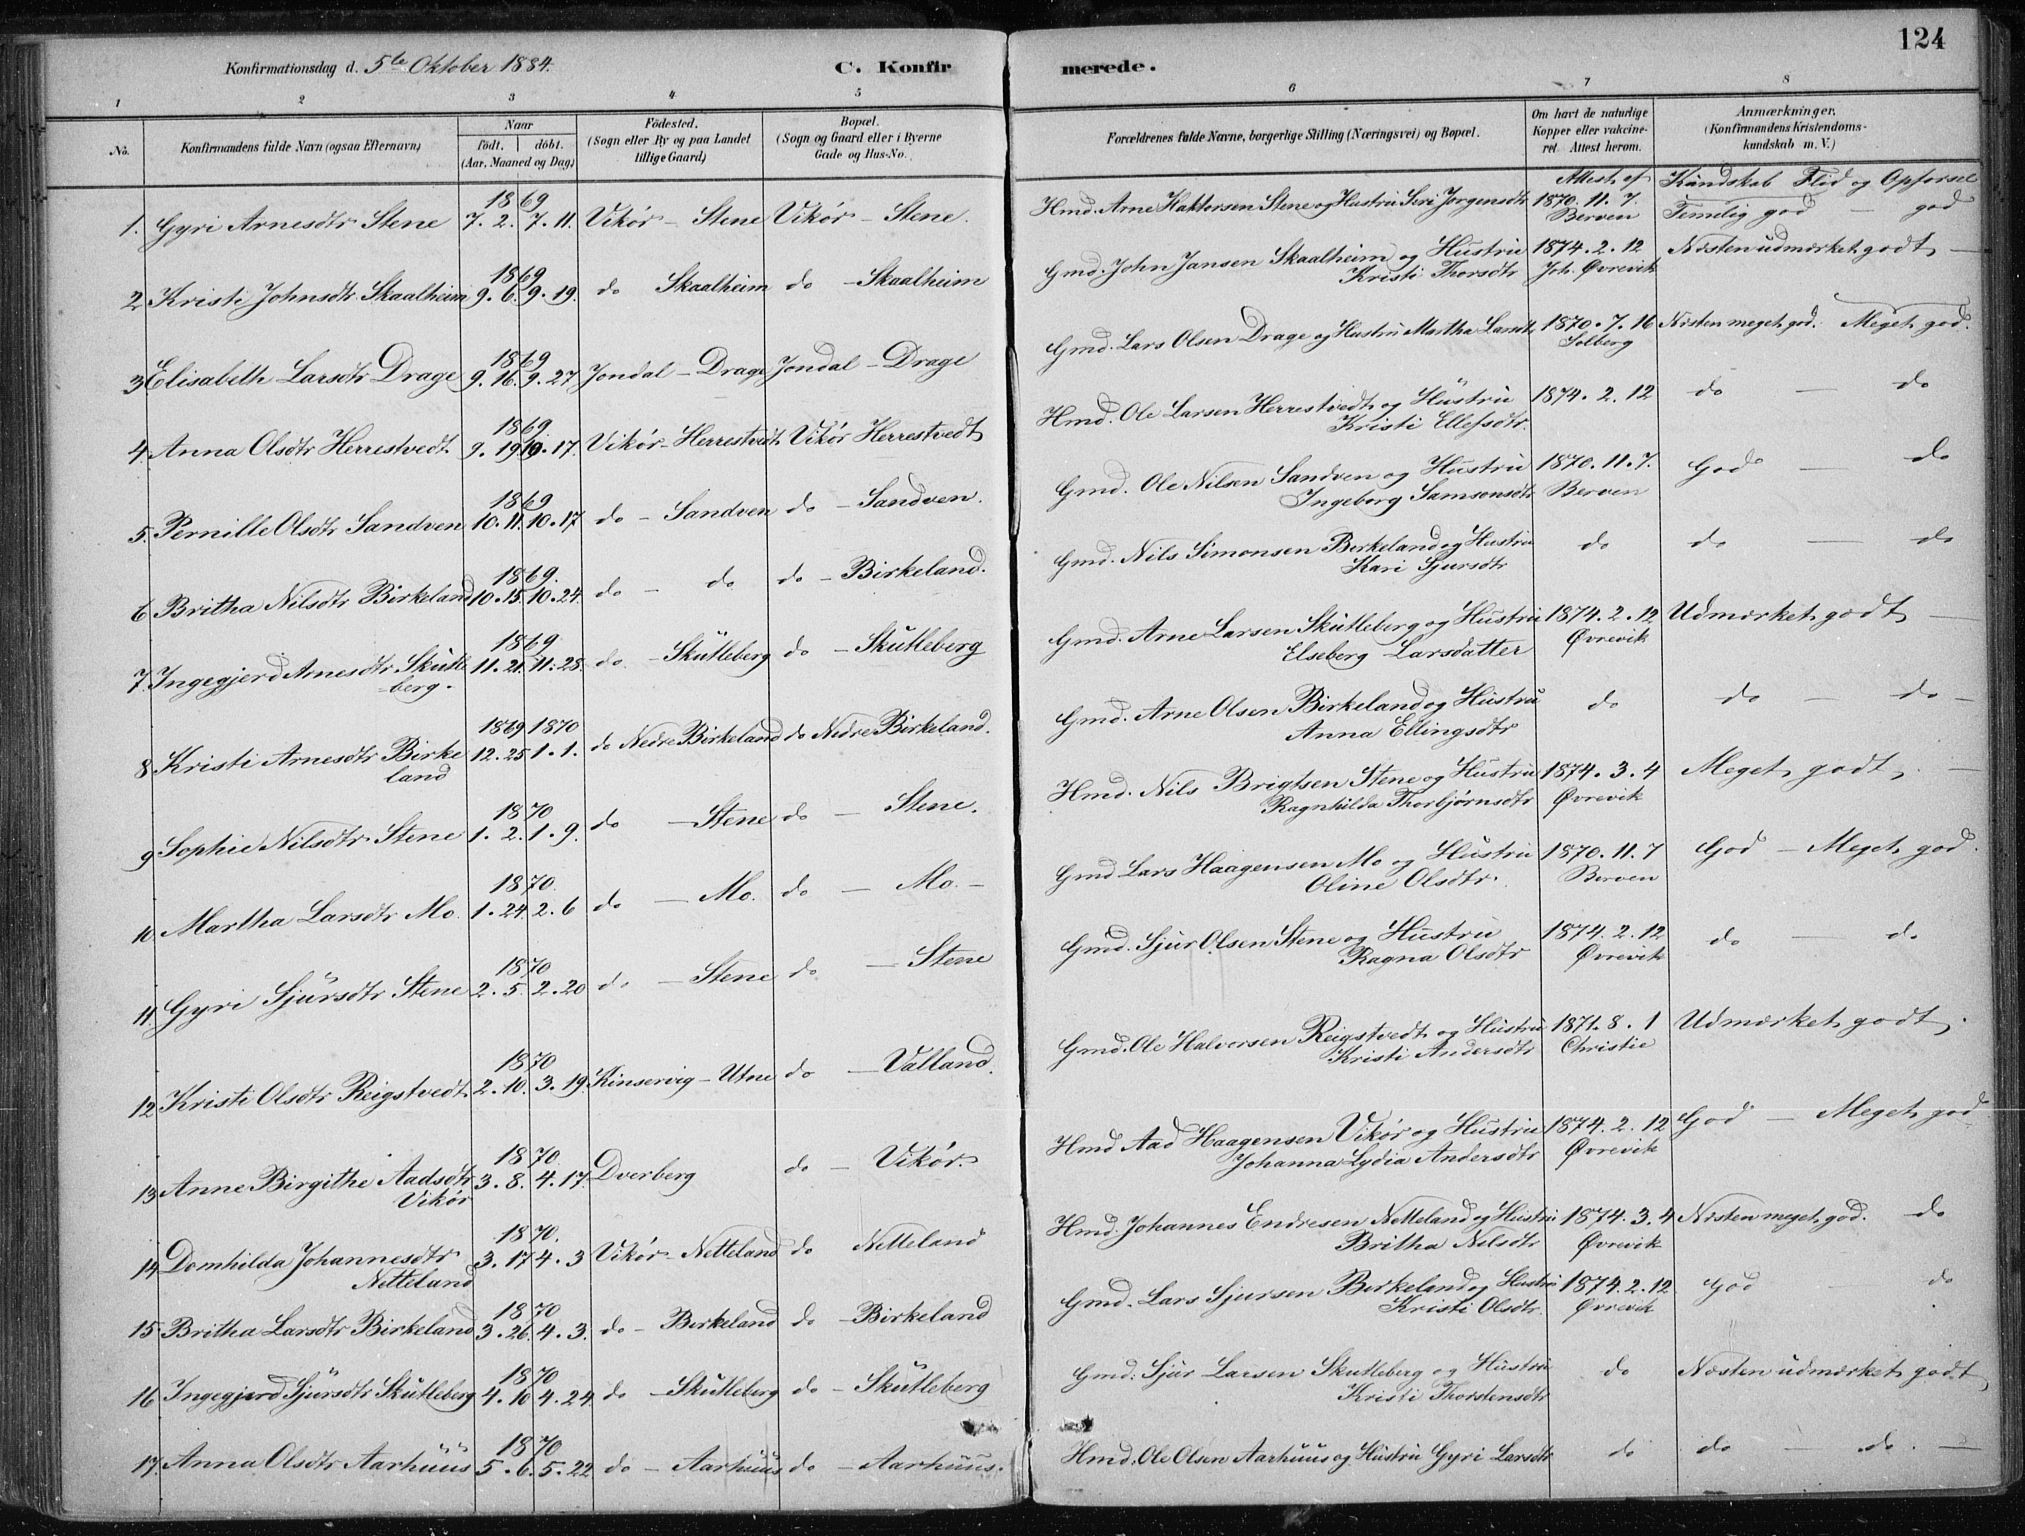 124
Konfirmationsdag d. 5te Oktober 1884.
C. Konfirmerede.
1 2 3 4 5 6 7 8
No.
Konfirmandens fulde Navn (ogsaa Efternavn)
Naar født. døbt. (Aar, Maaned og Dag)
Fødested. (Sogn eller By og paa Landet tillige Gaard)
Bopæl. (Sogn og Gaard eller i Byerne Gade og Hus-No.)
Forældrenes fulde Navne, borgerlige Stilling (Næringsvei) og Bopæl.
Om havt de naturlige Kopper eller vakcineret. Attest herom.
Anmærkninger. (Konfirmandens Kristendomskundskab m. V.)
Attest af Kundskab Flid og Opførsel
1. Gyri Arnesdtr Stene 1869 7. 2. 7. 11. Vikør - Stene Vikør - Stene. Hmd. Arne Haktorsen Stene og Hustru Siri Jørgensdtr 1870. 11. 7. Berven Temelig god - god
2. Kristi Johnsdtr Skaalheim 1869 9. 6. 9. 19. do Skaalheim do - Skaalheim Gmd. John Jansen Skaalheim og Hustru Kristi Thorsdtr 1874. 2. 12 Joh. Øvrevik Næsten udmærket godt -
3. Elisabeth Larsdtr Drage 1869 9. 16. 9. 27 Jondal - Drage Jondal - Drage Gmd. Lars Olsen Drage og Hustru Martha Larsdtr 1870. 7. 16 Solberg Næsten meget god. Meget god.
4. Anna Olsdtr Herrestvedt 1869 9. 19. 10. 17. Vikør - Herrestvedt Vikør Herrestvedt Hmd. Ole Larsen Herrestvedt og Hustru Kristi Ellefsdtr. 1874. 2. 12 do - do
5. Pernille Olsdtr Sandven 1869 10. 11. 10. 17 do - Sandven do - Sandven. Gmd. Ole Nilsen Sandven og Hustru Ingeborg Samsonsdtr 1870. 11. 7. Berven God - do
6 Britha Nilsdtr Birkeland 1869. 10. 15. 10. 24. do - do do - Birkeland. Gmd. Nils Simonsen Berkeland og Hustru Kari Sjursdtr do do - do
7. Ingegjerd Arnesdtr Skutleberg. 1869 11. 21. 11. 28. do - Skutleberg do - Skutleberg Gmd. Arne Larsen Skutleberg og Hustru Elseberg Larsdatter 1874. 2. 12 Øvrevik Udmærket godt -
8 Kristi Arnesdtr Birkeland 1869 1870 12. 25 1. 1. do Nedre Birkeland do Nedre Birkeland. Gmd. Arne Olsen Birkeland og Hustru Anna Ellingsdtr do do - do -
9 Sophie Nilsdtr Stene 1870 1. 2. 1. 9. do - Stene do - Stene. Hmd. Nils Brigtsen Stene og Hustru Ragnhilda Thorbjørnsdtr 1874. 3. 4 Øvrevik Meget godt. -
10. Martha Larsdtr Mo. 1870. 1. 24. 2. 6 do - Mo. do - Mo. - Gmd Lars Haagensen Mo og Hustru Oline Olsdtr. 1870. 11. 7 Berven God - Meget god.
11. Gyri Sjursdtr Stene 1870 2. 5. 2. 20 do - Stene do - Stene Gmd. Sjur Olsen Stene og Hustru Ragna Olsdtr 1874. 2. 12 Øvrevik do - do
12 Kristi Olsdtr Reigstvedt 1870 2. 10. 3. 19. Kinservig - Utne do - Valland. Gmd. Ole Halversen Reigstvedt og Hustru Kristi Andersdtr 1871. 8. 1 Christie Udmærket godt.
13 Anne Birgithe Aadsdtr Vikør 1870. 3. 8. 4. 17. Dverberg do - Vikør. Hmd Aad Haagensen Vikør og Hustru Johanna Lydia Andersdtr 1874. 2. 12 Øvrevik God - Meget god
14 Domhilda Johannesdtr Netteland 1870. 3. 17 4. 3 Vikør - Netteland do Netteland Hmd. Johannes Endresen Netteland og Hustru Britha Nilsdtr 1874. 3. 4 Øvrevik Næsten meget god. do
15. Britha Larsdtr Birkeland 1870 3. 26. 4. 3. do - Berkeland do - Birkeland Gmd. Lars Sjursen Berkeland og Hustru Kristi Olsdtr. 1874. 2. 12 Øvrevik God do
16 Ingegjerd Sjursdtr Skutleberg 1870 4. 10 4. 24. do - Skutleberg do - Skutleberg Gmd. Sjur Larsen Skutleberg og Hustru Kristi Thorstensdtr do Næsten udmærket godt
17. Anna Olsdtr Aarhuus 1870 5. 6. 5. 22 do - Aarhuus do - Aarhuus. Hmd. Ole Olsen Aarhuus og Hustru Gyri Larsdtr do do - do. -